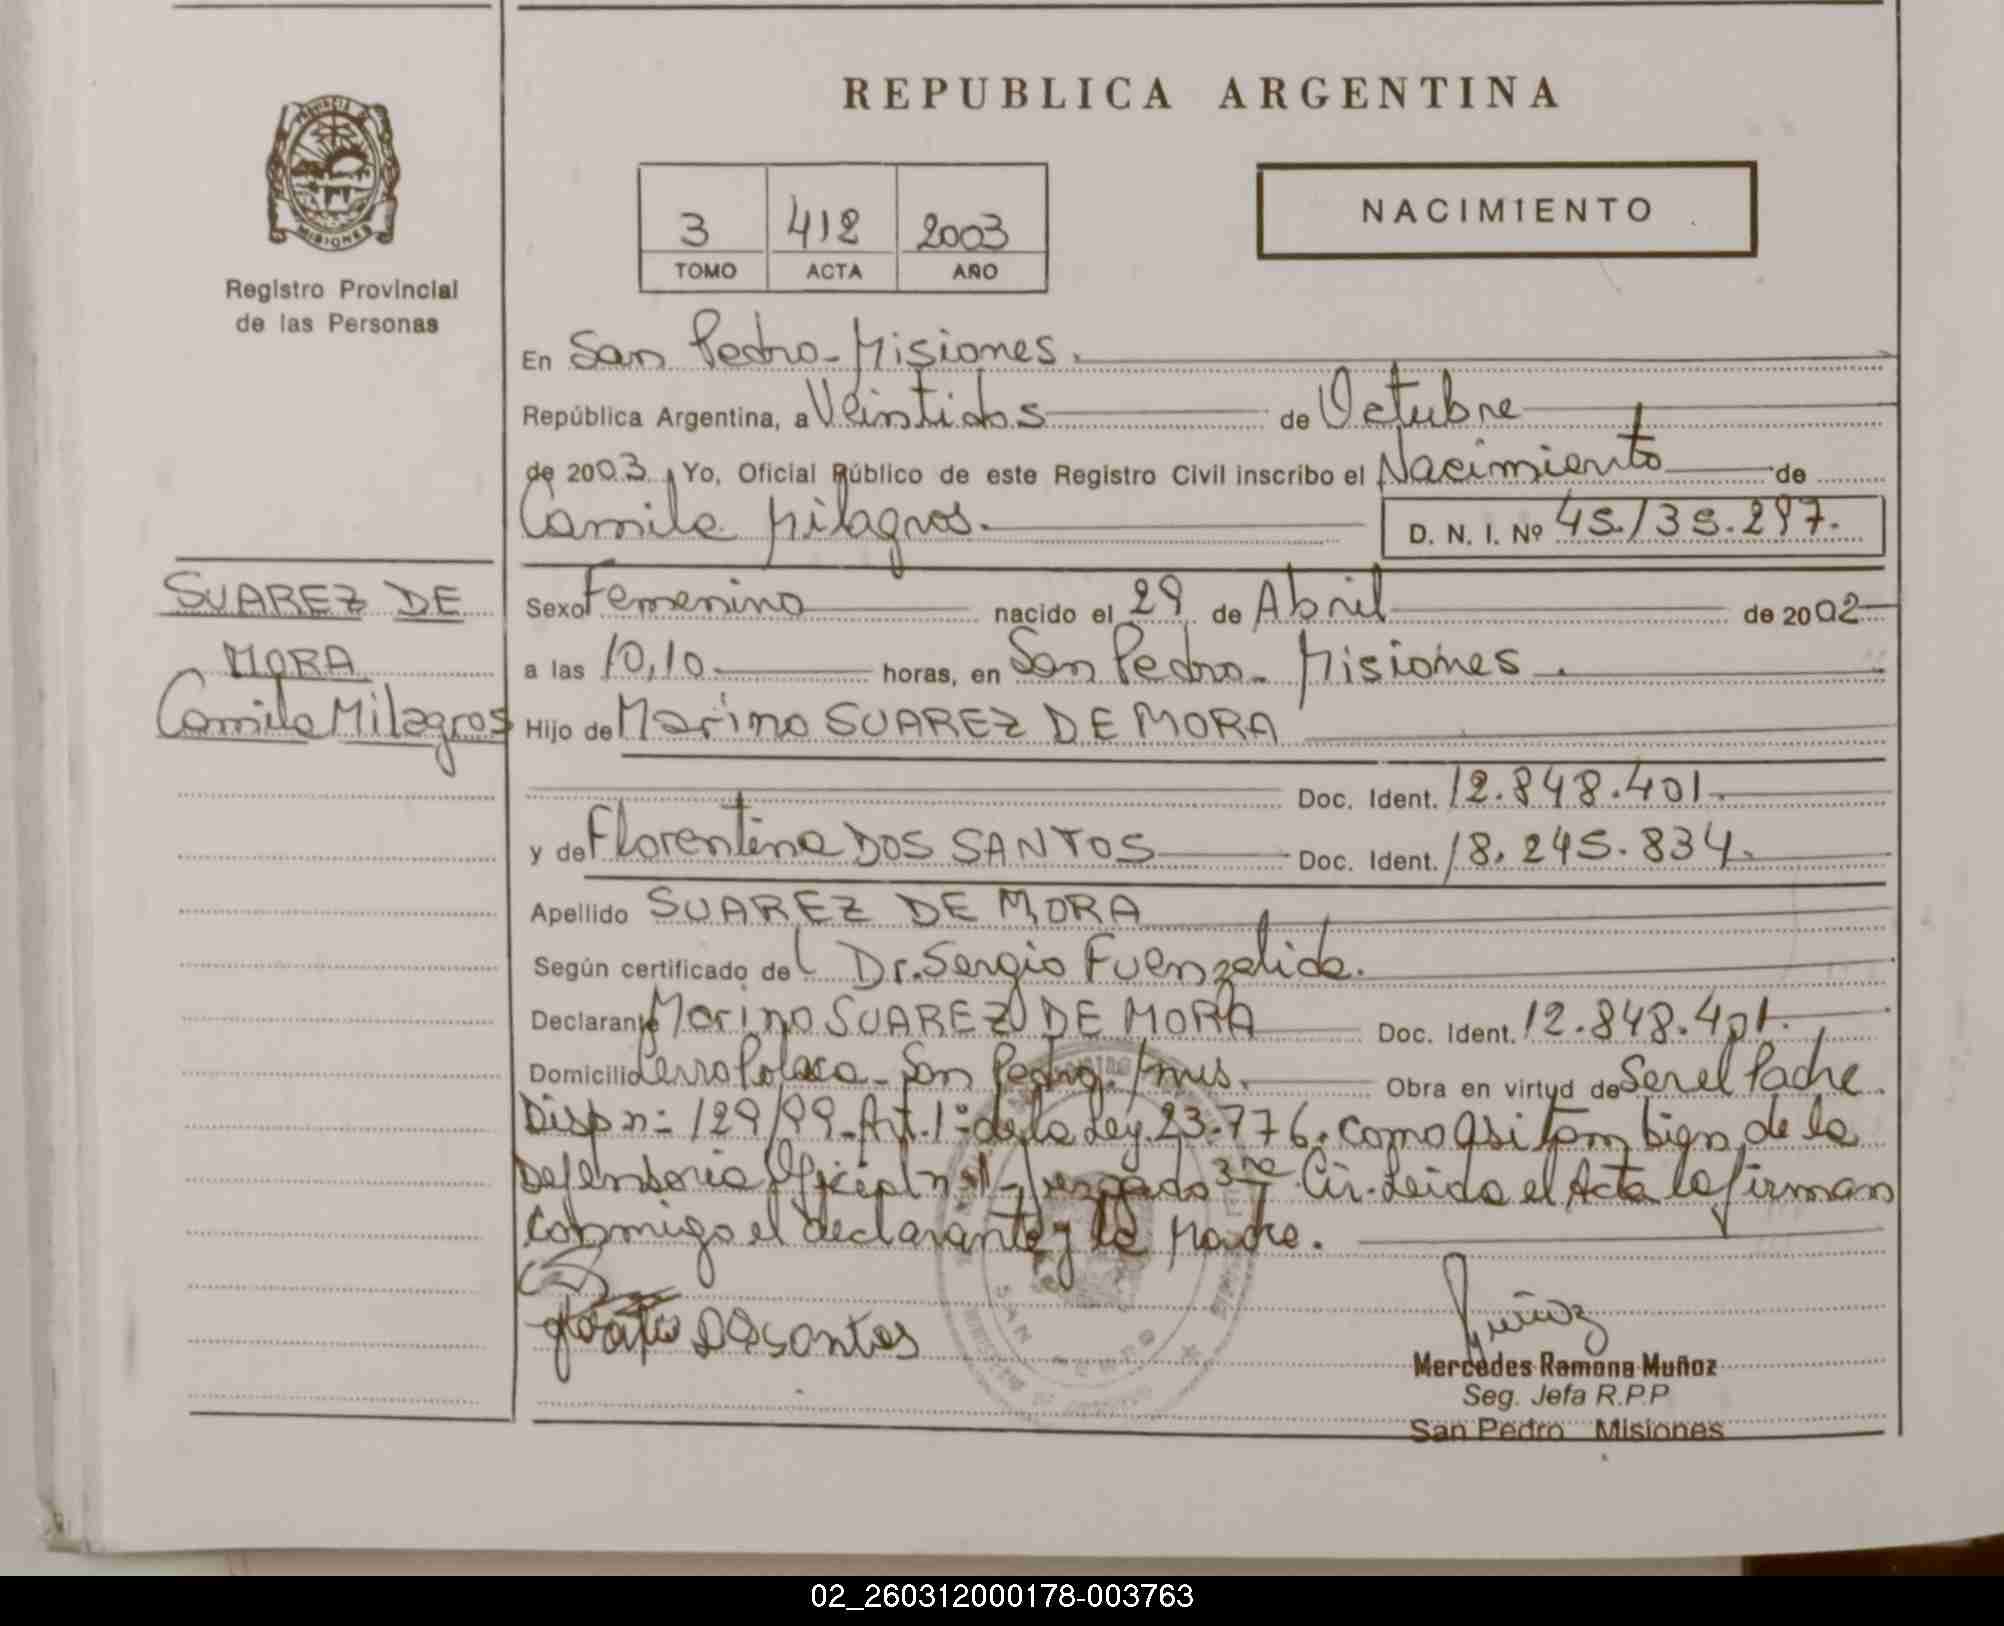 REPUBLICA ARGENTINA
PROVINCIA DE MISIONES
Registro Provincial
de las Personas
3 412 2003
TOMO ACTA AÑO
NACIMIENTO
En San Pedro - Misiones.
República Argentina, a Veintidos de Octubre
de 2003. Yo, Oficial Público de este Registro Civil inscribo el Nacimiento de
Camila Milagros. D. N. I. Nº 45.135.297.
SUAREZ DE
MORA
Camila Milagros
Sexo Femenino nacido el 29 de Abril de 2002
a las 10,10 horas, en San Pedro - Misiones.
Hijo de Marino SUAREZ DE MORA
Doc. Ident. 12.848.401.
y de Florentina DOS SANTOS Doc. Ident. 18.245.834.
Apellido SUAREZ DE MORA
Según certificado del Dr. Sergio Fuenzalida.
Declarante Marino SUAREZ DE MORA Doc. Ident. 12.848.401.
Domicilio Cerro Polaco - San Pedro. Mnes. Obra en virtud de Ser el Padre
Disp nº 129/99 - Art. 1º de la Ley. 23.776. como asi tambien de la
Defensoria Oficial nº 1 - Juzgado 3ra Cir. Leida el Acta la firman
conmigo el declarante y la madre.
Dosantos
Muñoz
Mercedes Ramona Muñoz
Seg. Jefa R.P.P
San Pedro Misiones
SAN PEDRO
02_260312000178-003763